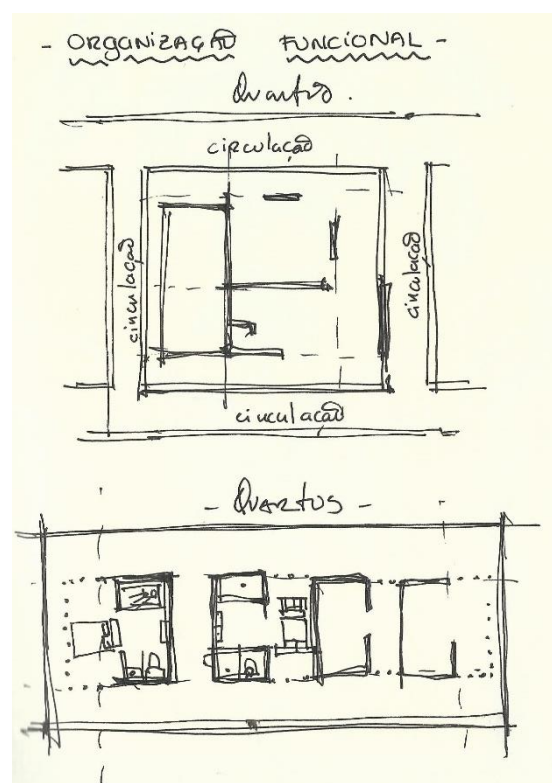 - ORGANIZAÇÃO FUNCIONAL -
Quartos.
circulação
circulação
circulação
circulação
- QUARTOS -